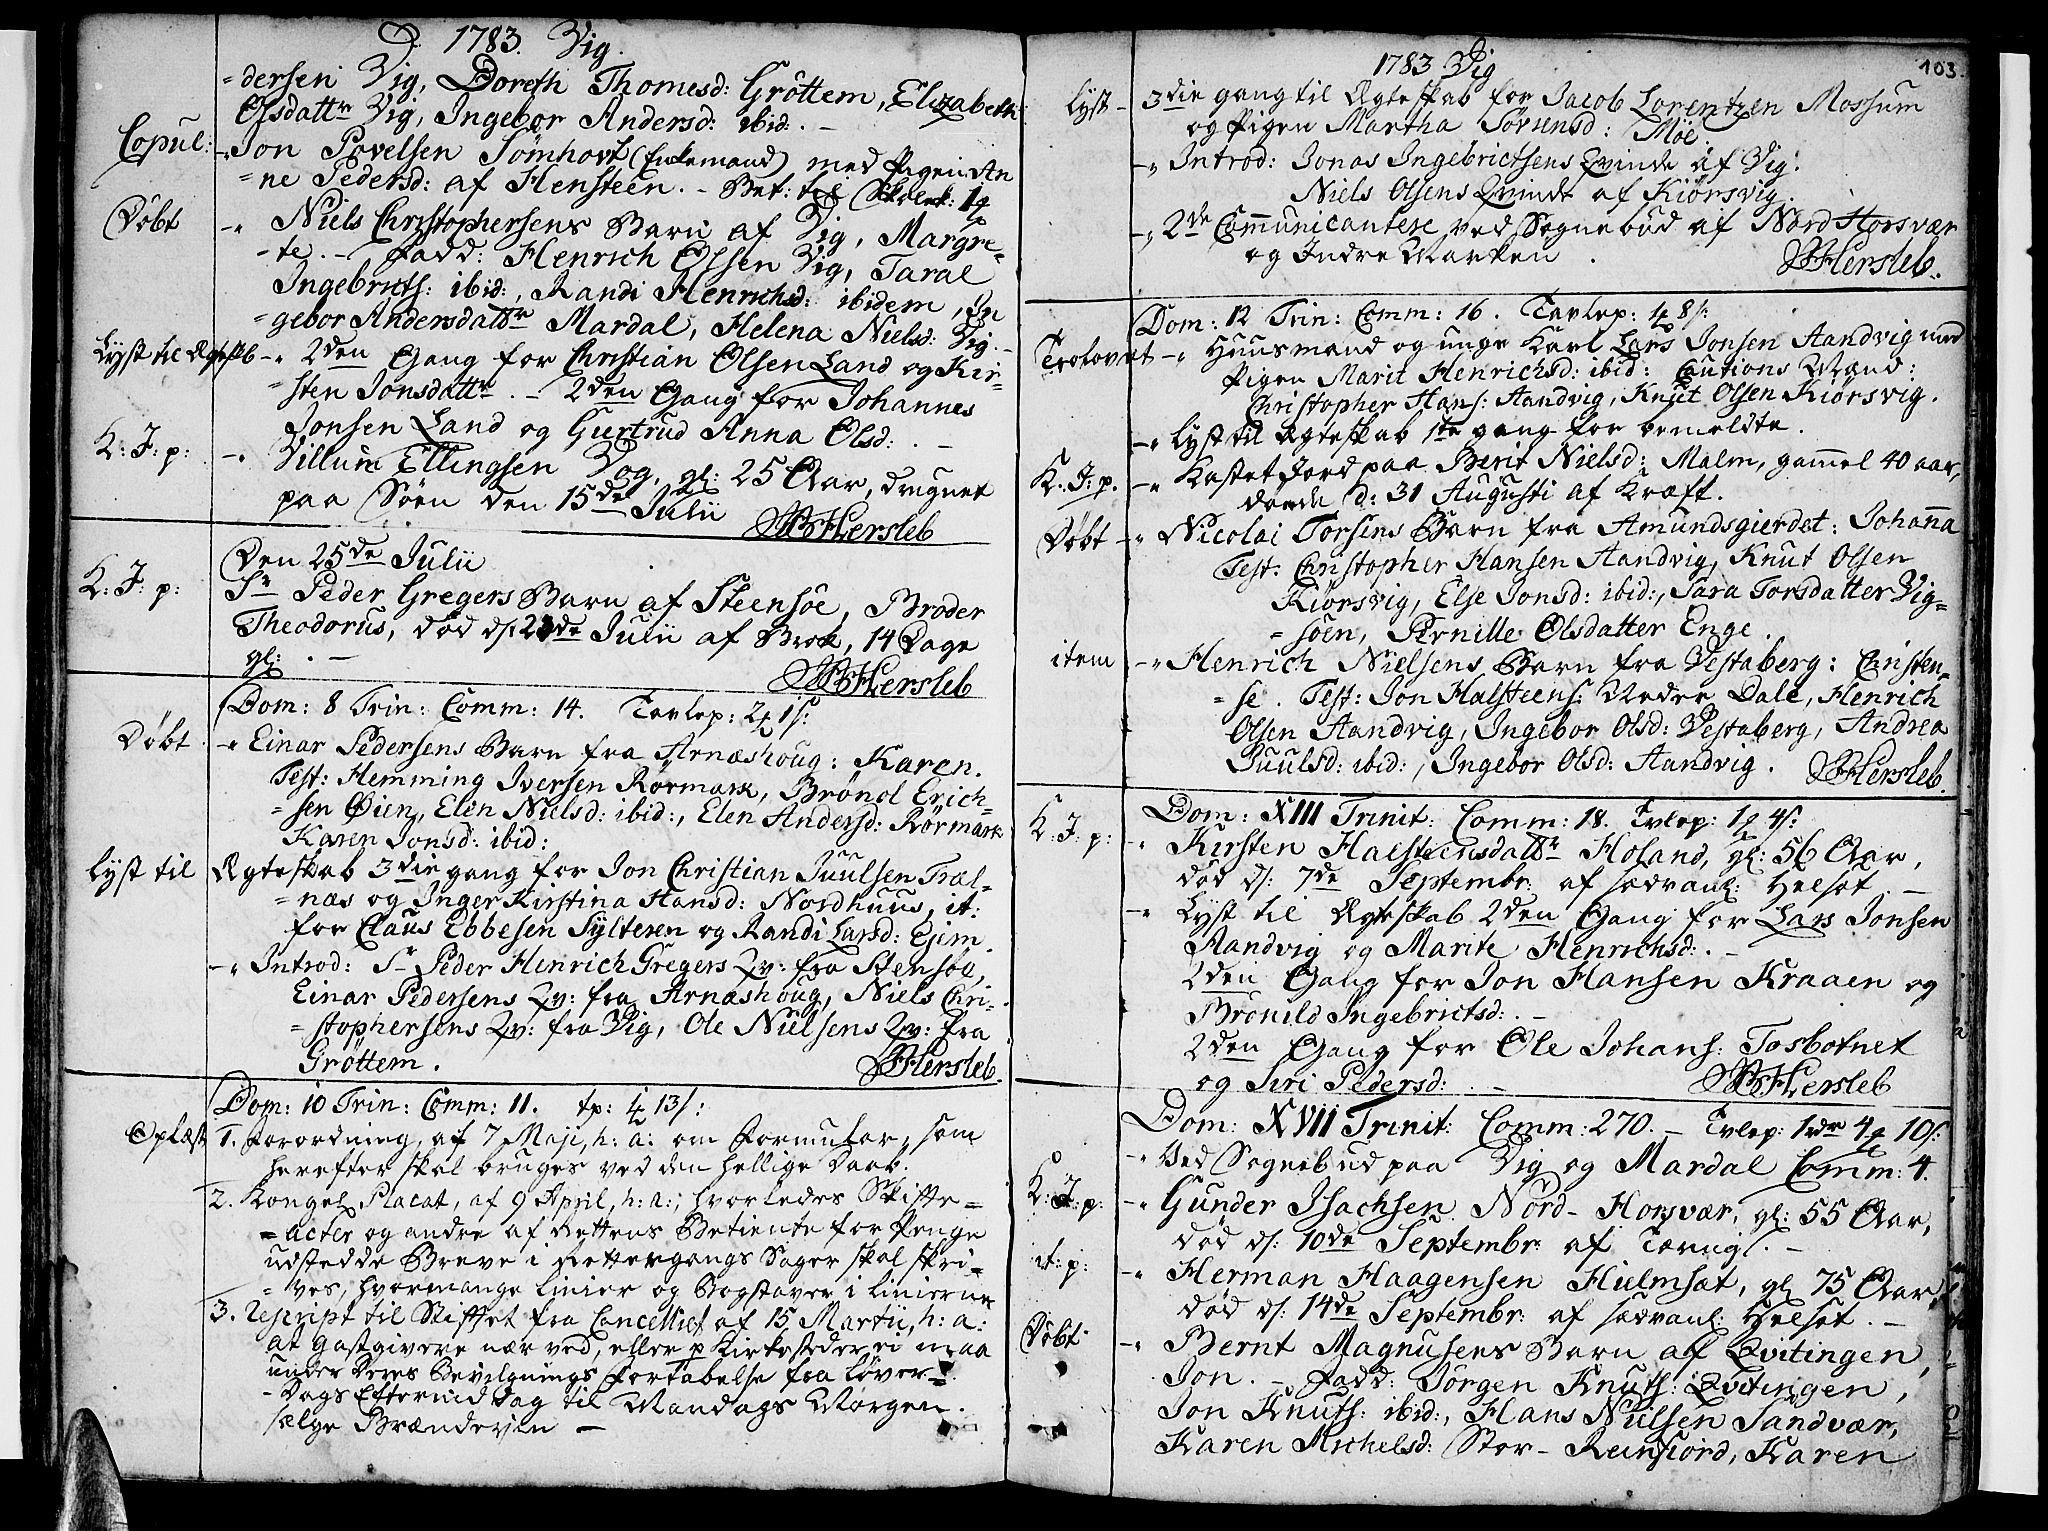 D. 1783. Vig.
=dersen Vig, Doreth Thomesd: Gröttem, Elizabeth
Olsdattr Vig, Ingebor Andersd: ibid: . -
Copul: -" Jon Povelsen Tömhovt (Enkemand) med Pigen An
=ne Pedersd: af Hensteen. - Bet: til Skolek:
Döbt -" Niels Christophersens Barn af Vig, Margre=
=te. - Fadd: Henrich Olsen Vig, Taral
Ingebricts: ibid:, Randi Henrichsd: ibidem, In
=gebor Andersdattr Mardal, Helena Nielsd: Vig. -
Lyst til Ægteskb -" 2den Gang for Christian Olsen Land og Kir=
=sten Jonsdattr . - 2den Gang for Johannes
Jonsen Land og Gurtrud Anna Olsd: . -
K: J: p: -" Villum Ellingsen Vog, gl: 25 Aar, drugnet
paa Söen den 15de Julii
Hersleb
Den 25de Julii
K: J: p: Sr Peder Gregers Barn af Steensöe, Broder
Theodorus, död ds: Julii af Brok, 14 Dage
gl: . -
Hersleb
Dom: 8 Trin: Comm: 14. Tavlep: 2 1 s:
Döbt -" Einar Pedersens Barn fra Arnæshoug: Karen.
Test: Hemming Iversen Rörmark, Brönol Erich=
=sen Öien, Elen Nielsd: ibid:, Elen Andersd: Rörmark
Karen Jonsd: ibid:
Lyst til Ægteskab 3die gang for Jon Christian Juulsen Træl=
=næs og Inger Kirstina Hansd: Nordhuus, it:
for Claus Ebbesen Sylteren og Randi Larsd: Ejem.
-" Introd: Sr Peder Henrich Gregers Qv: fra Stensöe,
Einar Pedersens Qv: fra Arnæshoug, Niels Chri=
=stophersens Qv: fra Vig, Ole Nielsens Qv: fra
Gröttem.
Hersleb
Dom: 10 Trin: Comm: 11. tp: 13 s:
Oplæst 1. Forordning, af 7 Maji, h: a: om Formular, som
herefter skal bruges ved den hellige Daab.
2. Kongel. Placat, af 9 April, h: a:, hvorledes Skifte=
=acter og andre af Rettens Betiente for Penge
udstedde Breve i Rettergangs Sager skal skri=
=ves, hvormange Linier og Bogstaver i Linierne
3. Rescript til Stiftet fra Cancelliet af 15 Martii, h: a:
at Gastgivere nær ved, eller p Kirkesteder ei maa
under Deres Bevilgnings Fortabelse fra Löver=
=dags Eftermiddag til Mandags Morgen.
sælge Brændeviin -
1783 Vig
103.
Lyst - 3die gang til Ægteskab for Jacob Lorentzen Mossum
og Pigen Martha Sörensd: Möe.
-" Introd: Jonas Ingebrictsens Qvinde af Vig.
Niels Olsens Qvinde af Kiörsvig.
-" 2de Communicantere ved Sognebud af Nord Horsvær
og Indre Marken .
Hersleb.
Dom: 12 Trin: Comm: 16. Tavlep: 8 s:
Trolovet -" Huusmand og unge Karl Lars Jonsen Aandvig med
Pigen Marit Henrichsd: ibid: Cautions Mænd:
Christopher Hans: Aandvig, Knut Olsen Kiörsvig.
-" Lyst til Ægteskab 1ste gang for bemeldte.
K: J: p. -" Kastet Jord paa Berit Nielsd: Malm, gamel 40 aar,
d: 31 Augusti af Kræft.
Döbt -" Nicolai Torsens Barn fra Amundsgierdet: Johanna
Test. Christopher Hansen Aandvig, Knut Olsen
Kiörsvig, Else Jonsd: ibid:, Sara Torsdatter Vig=
=söen, Pernille Olsdatter Enge.
item -" Henrich Nielsens Barn fra Vestaberg: Christen=
=se. Test: Jon Halsteens: Nedre Dale, Henrich
Olsen Aandvig, Ingebor Olsd: Vestaberg, Andrea
Juulsd: ibid:, Ingebor Olsd: Aandvig.
Hersleb.
Dom: XIII Trinit: Comm: 18. Tvlep: 1 4 s:
K: J: p: -" Kirsten Halsteensdattr Holand, gl: 56 Aar,
död ds: 7de Septembr: af sædvanl: Helsot. -
-" Lyst til Ægteskab 2den Gang for Lars Jonsen
Aandvig og Marite Henrichsd: . -
2den Gang for Jon Hansen Kraaen og
Bronild Ingebrictsd: . -
2den Gang for Ole Johans: Tosbotnet
og Siri Pedersd: . -
Hersleb
Dom: XVII Trinit: Comm: 270. - Tvlep: 1 rdr 4 10 s:
-" Ved Sognebud paa Vig og Mardal Comm: 4.
K: J: p: -" Gunder Isachsen Nord-Horsvær, gl: 55 Aar,
död ds: 10de Septembr: af . -
it: p: -" Herman Haagensen Hielmsæt, gl 75 Aar,
död ds: 14de Septembr: af sædvanl: Helsot. -
Döbt -" Bernt Magnusens Barn af Qvitingen,
Jon. - Fadd: Jörgen Knuts: Qvitingen,
Jon Knuts: ibid:, Hans Nielsen Sandvær,
Karen Michelsd: Stor-Reinfiord, Karen